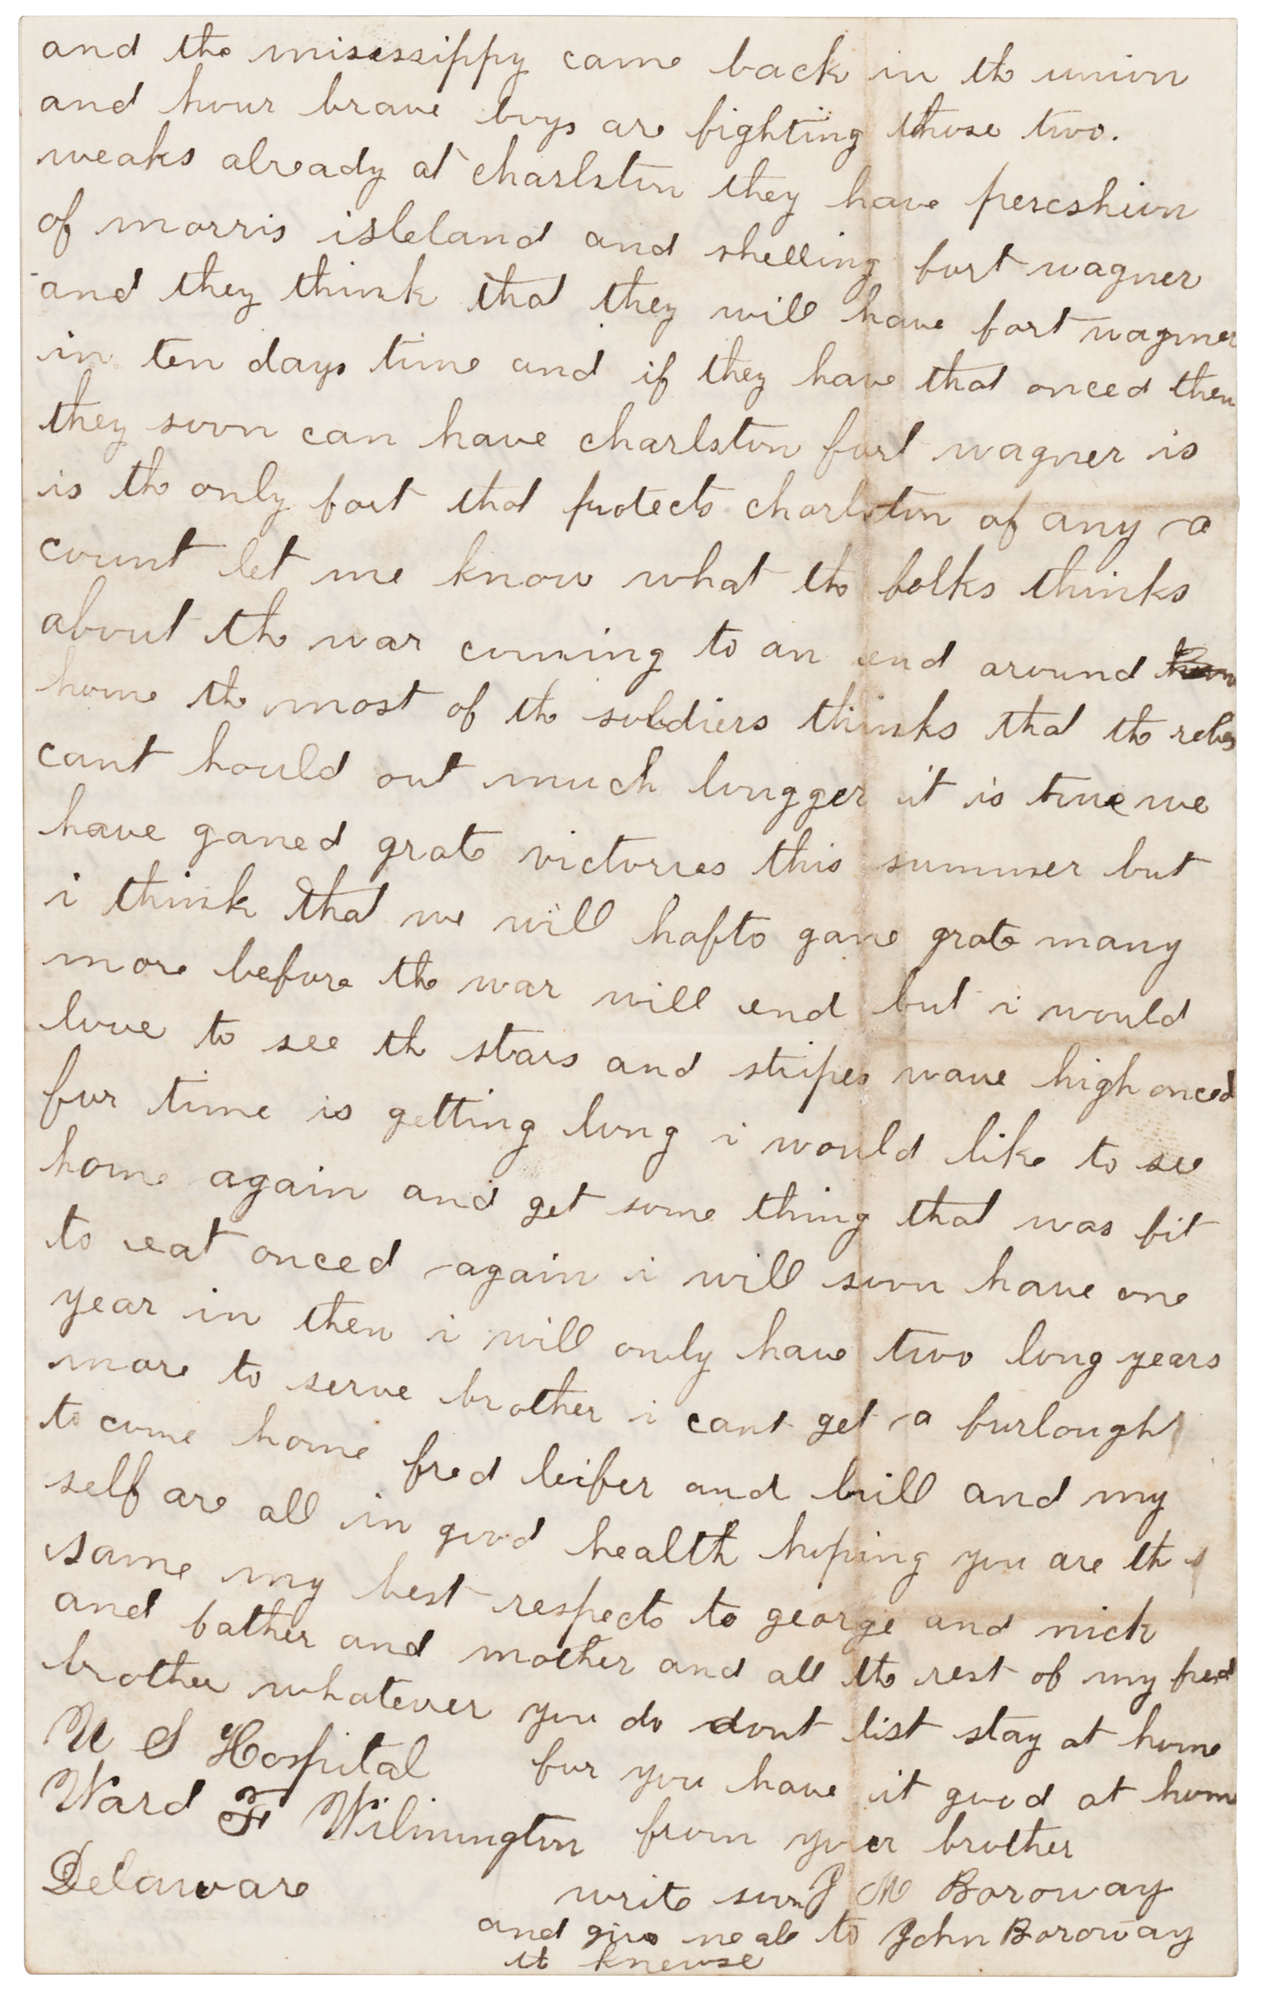 and the misessippy came back in th union
and hour brave boys are fighting those two.
weaks already at charlston they have pereshion
of morris isleland and shelling fort wagner
and they think that they will have fort wagner
in ten days time and if they have that onced then
they soon can have charlston fort wagner is
is the only fort that protects charlston of any a
count let me know what the folks thinks
about the war coming to an end around
home the most of the soldiers thinks that the rebes
cant hould out much longger it is true we
have ganed grate victorres this summer but
i think that we will hafto gane grate many
more before the war will end but i would
love to see th stars and stripes wave high onced
for time is getting long i would like to see
home again and get some thing that was fit
to eat onced again i will soon have one
year in then i will only have two long years
more to serve brother i cant get a furlough
to come home fred leifer and bill and my
self are all in good health hoping you are the
same my best respects to george and nick
and father and mother and all the rest of my
brother whatever you do dont list stay at home
U S Hospital for you have it good at hom
Ward F Wilmington from your brother
Delaware write soon J M Boroway
and give to John Boroway